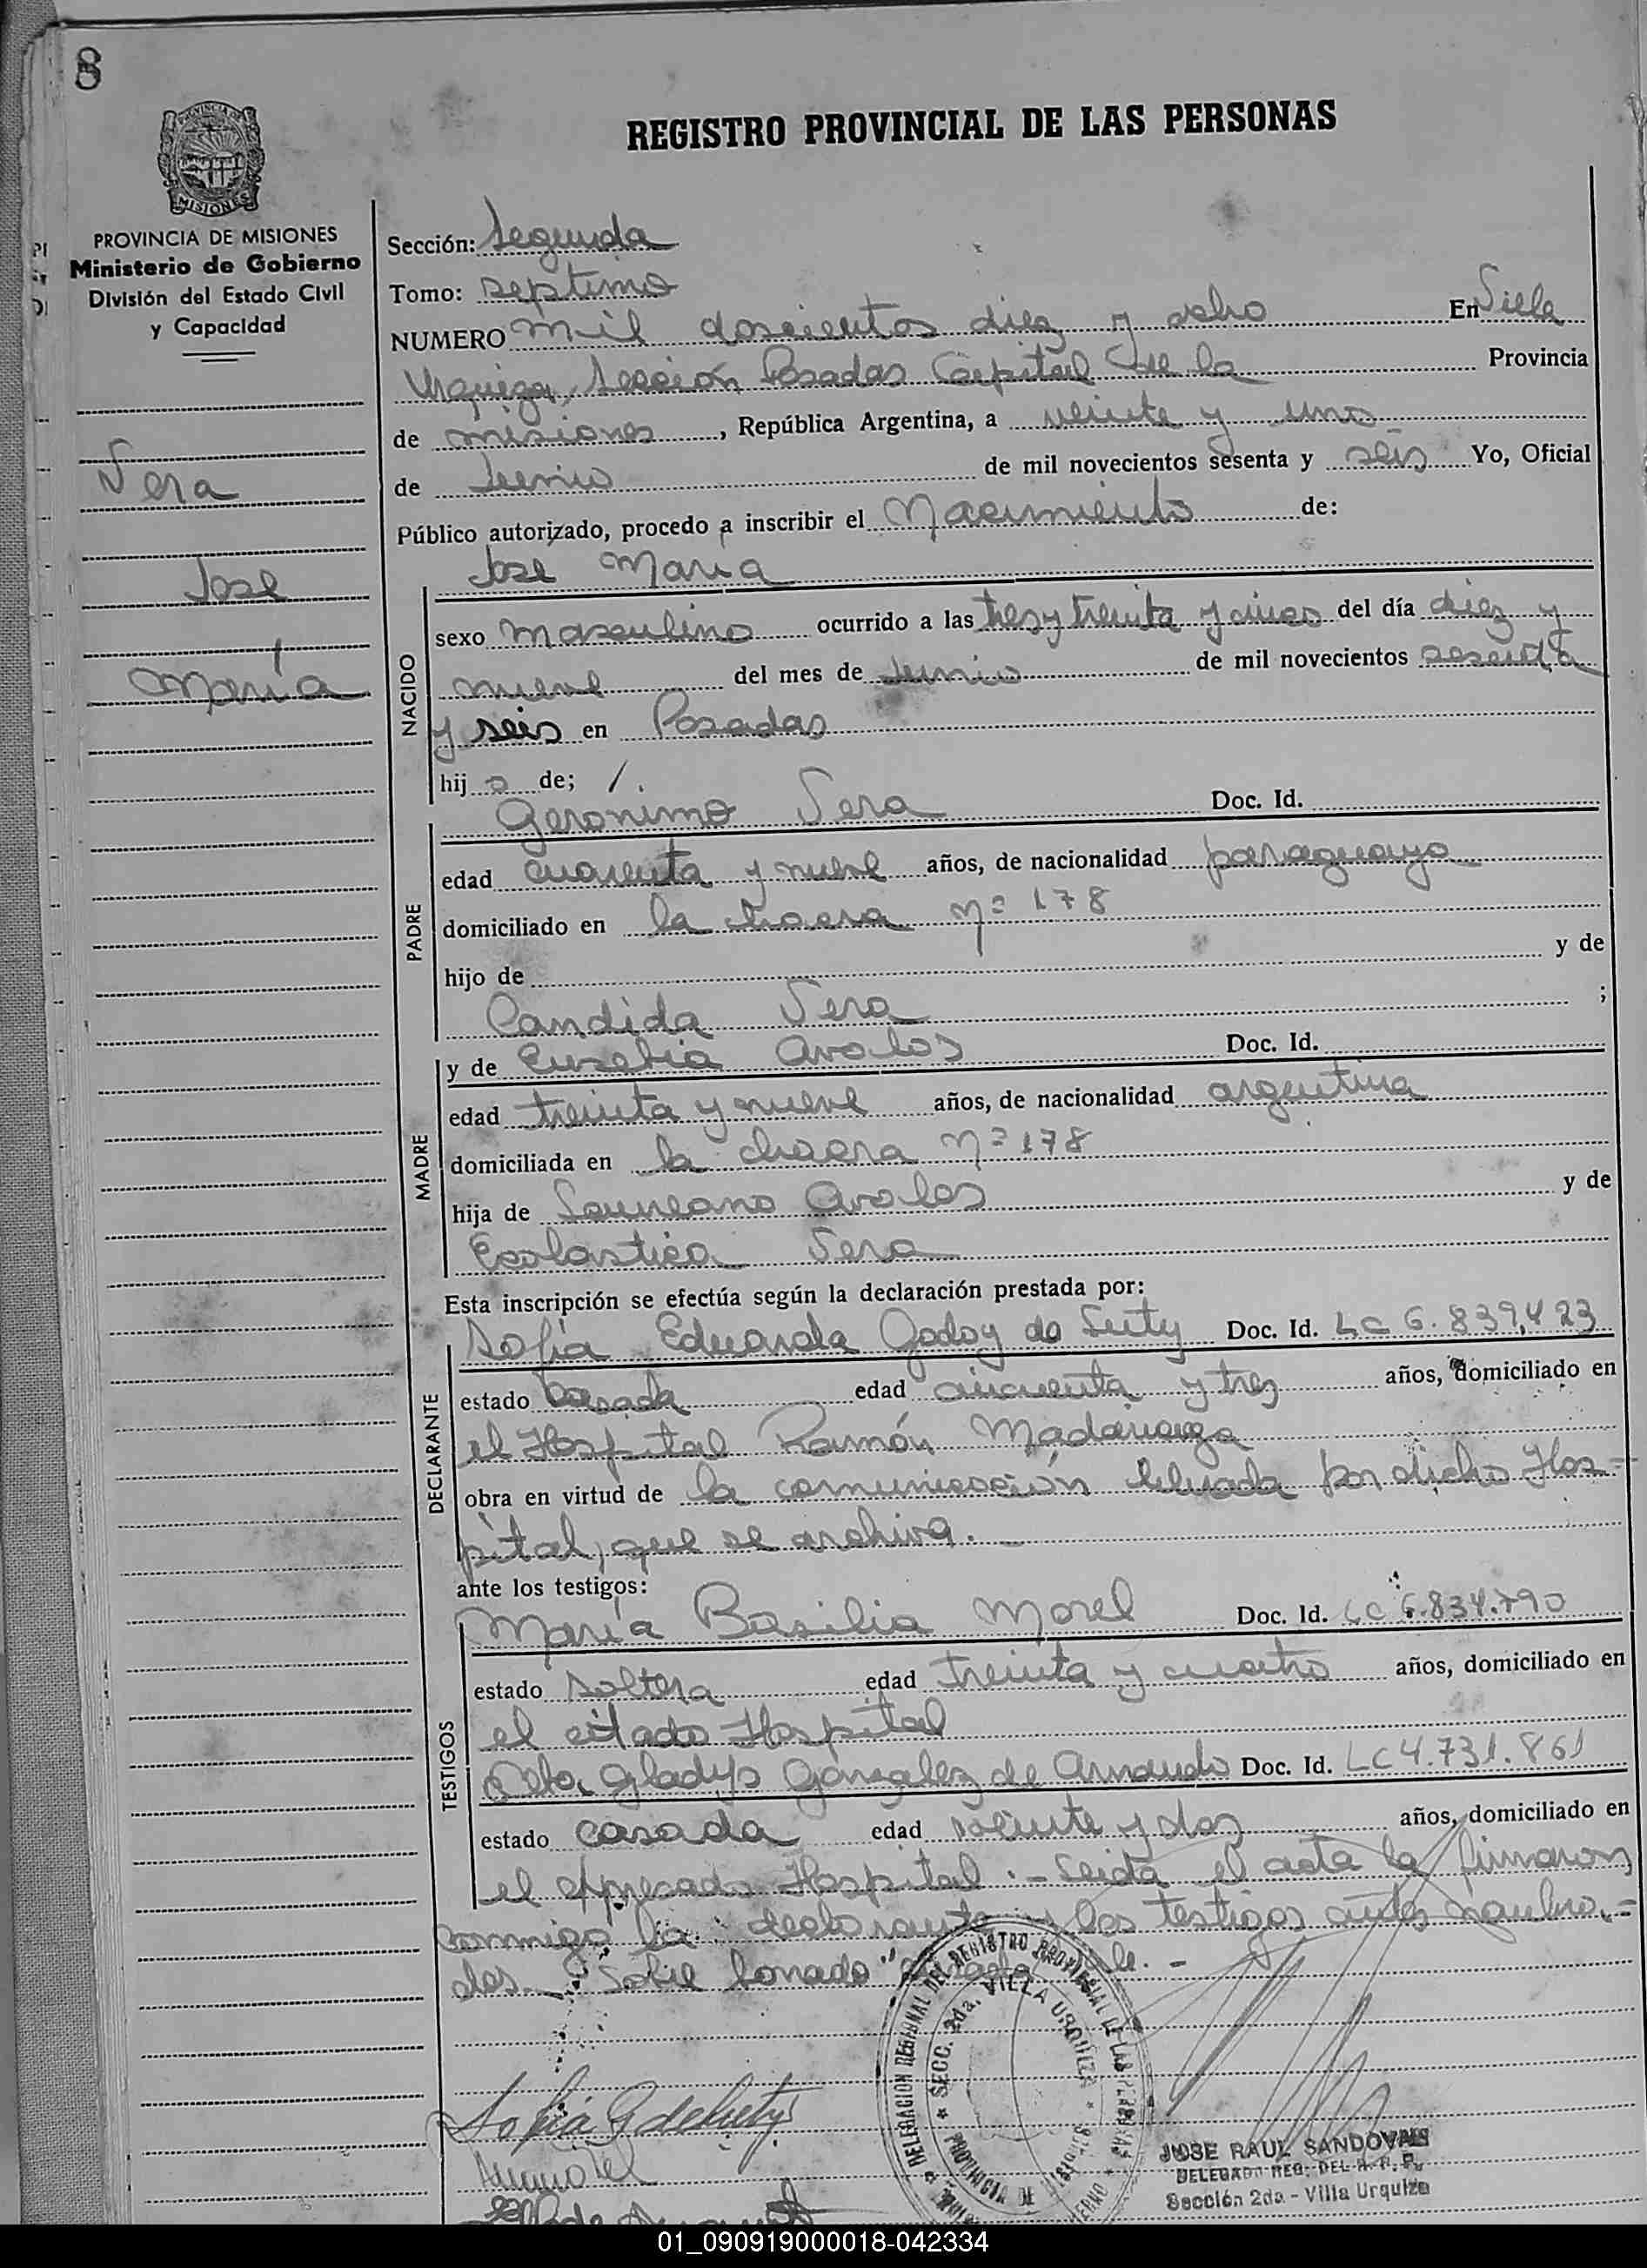 8
REGISTRO PROVINCIAL DE LAS PERSONAS
PROVINCIA DE MISIONES
Ministerio de Gobierno
División del Estado Civil
y Capacidad
Vera
Jose
María
Sección: Segunda
Tomo: septimo
NUMERO mil doscientos diez y ocho En Villa
Urquiza, Sección Posadas Capital de la Provincia
de misiones, República Argentina, a veinte y uno
de Junio de mil novecientos sesenta y seis Yo, Oficial
Público autorizado, procedo a inscribir el Nacimiento de:
Jose Maria
NACIDO
sexo masculino ocurrido a las tres y treinta y cinco del día diez y
nueve del mes de Junio de mil novecientos sesenta
y seis en Posadas
hijo de; /.
Geronimo Vera Doc. Id.
PADRE
edad cuarenta y nueve años, de nacionalidad paraguayo
domiciliado en la chacra nº 178
hijo de y de
Candida Vera ;
y de Eusebia Avalos Doc. Id.
MADRE
edad treinta y nueve años, de nacionalidad argentina
domiciliada en la chacra nº 178
hija de Laureano Avalos y de
Escolastica Vera
Esta inscripción se efectúa según la declaración prestada por:
Sofia Eduarda Godoy de Doc. Id. LC 6.839.423
DECLARANTE
estado casada edad cincuenta y tres años, domiciliado en
el Hospital Ramón Madariaga
obra en virtud de la comunicación librada por dicho Hos-
pital, que se archiva.
ante los testigos:
María Basilia Morel Doc. Id. LC 6.834.790
TESTIGOS
estado soltera edad treinta y cuatro años, domiciliado en
el citado Hospital
Gladys Gonzalez de Doc. Id. LC 4.731.861
estado casada edad veinte y dos años, domiciliado en
el expresado Hospital .- Leida el acta la firmaron
conmigo la declarante y los testigos antes nombra.=
dos. Sobre borrado vale. -
DELEGACION REGIONAL DEL REGISTRO PROVINCIAL DE LAS PERSONAS
SECC. 2da. VILLA URQUIZA
PROVINCIA DE
JOSE RAUL SANDOVAL
DELEGADO REG. DEL R. P. P.
Sección 2da - Villa Urquiza
01_090919000018-042334